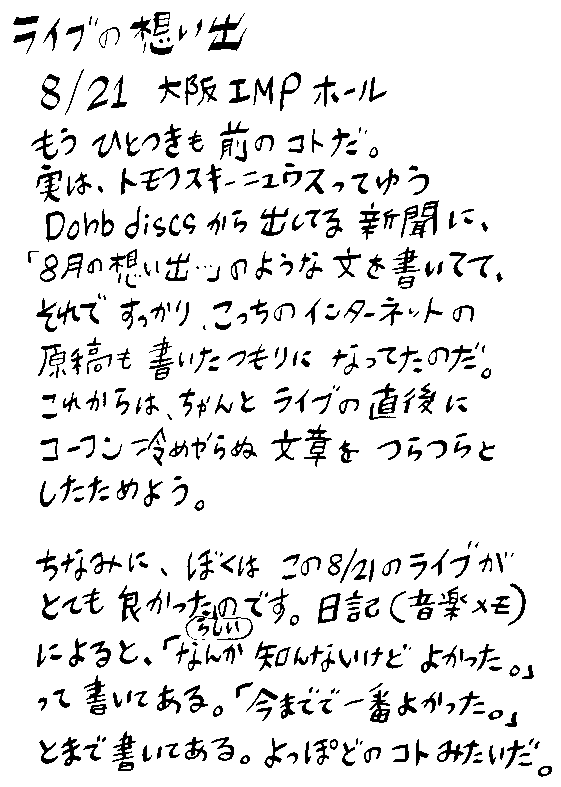 ライブの想い出
8/21 大阪IMPホール
もうひとつきも前のコトだ。
実は、トモフスキーニュウスってゆう
Dohb discsから出してる新聞に、
「8月の想い出…」のような文を書いてて、
それですっかり、こっちのインターネットの
原稿も書いたつもりになってたのだ。
これからは、ちゃんとライブの直後に
コーフン冷めやらぬ文章をつらつらと
したためよう。
ちなみに、ぼくはこの8/21のライブが
とても良かったのです。日記(音楽メモ)
らしい
によると、「なんか知んないけどよかった。」
って書いてある。「今までで一番よかった。」
とまで書いてある。よっぽどのコトみたいだ。